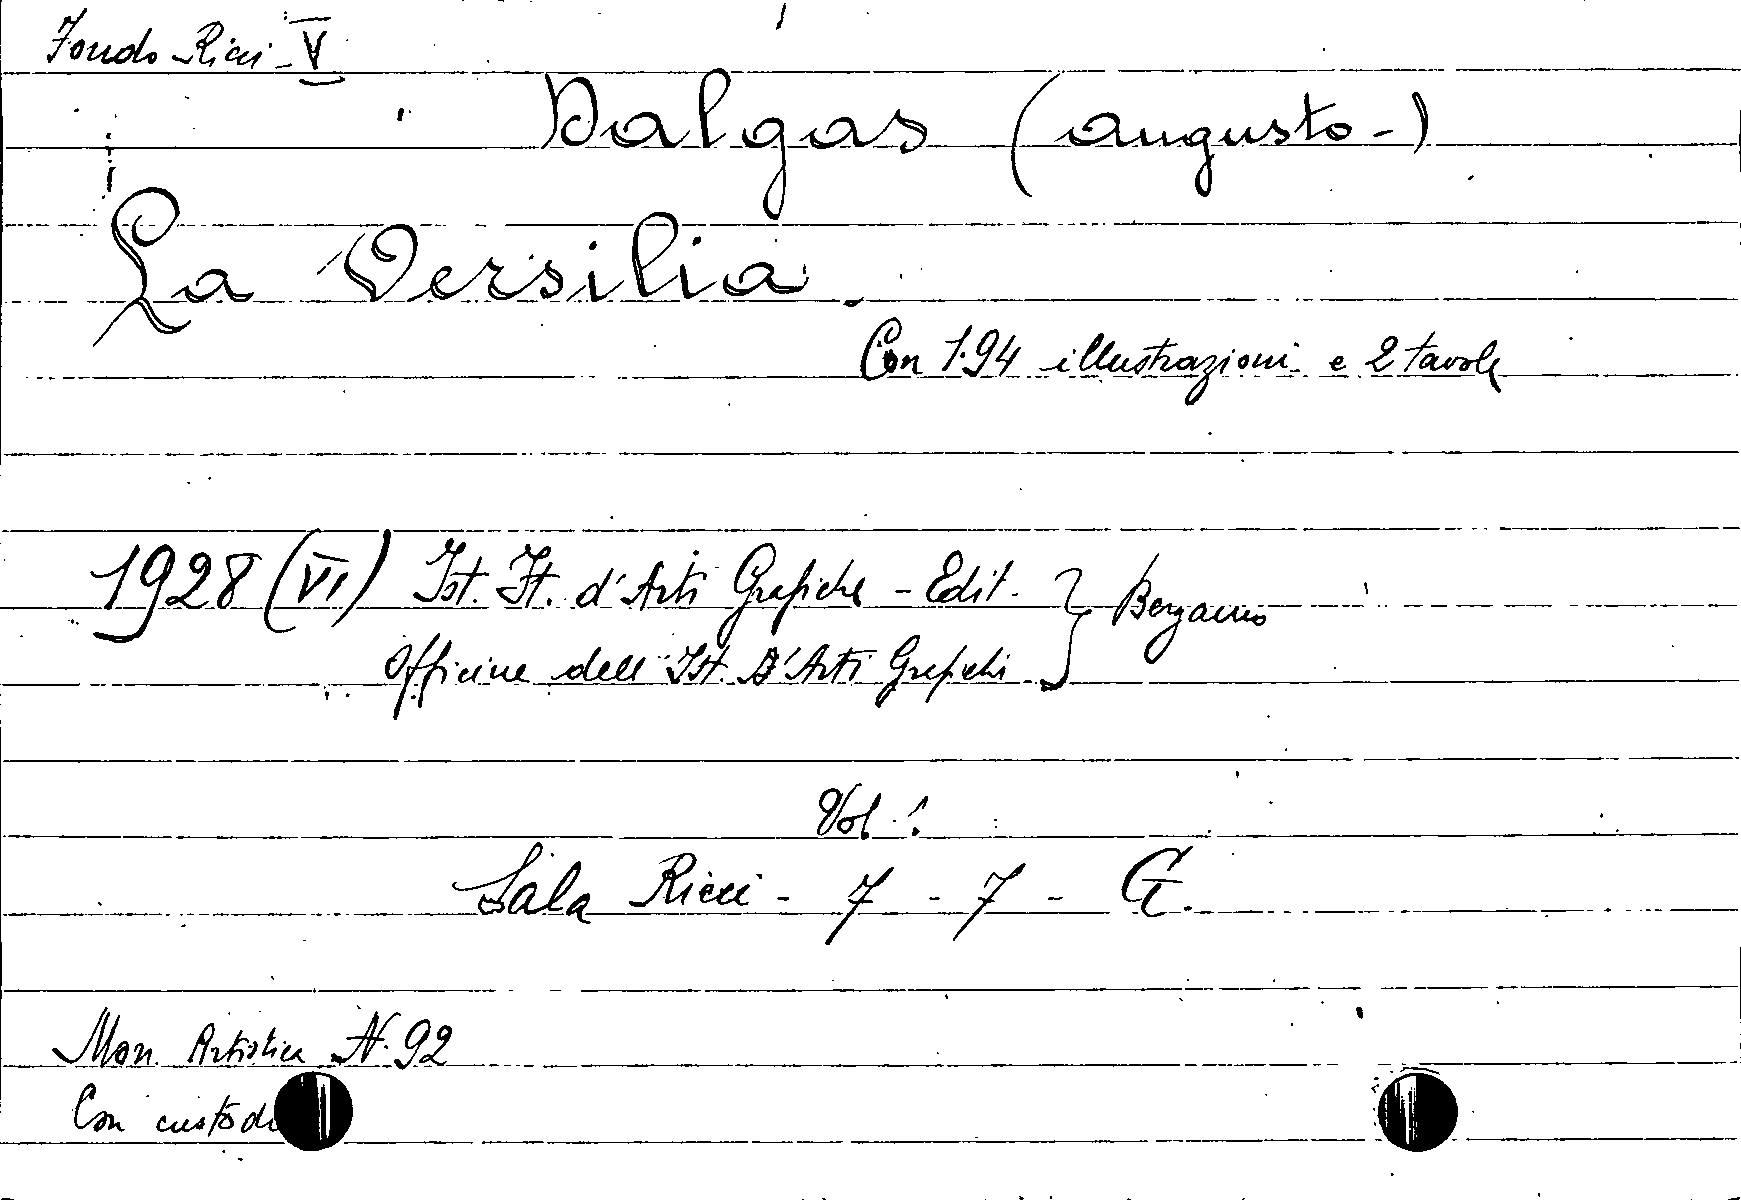 Fondo Ricci - V
Dalgas (Augusto -)
La Versilia.
Con 194 illustrazioni e 2 tavole
1928 (VI) Ist. It. d'Arti Grafiche - Edit. } Bergamo
Officine dell'Ist. d'Arti Grafiche
Vol.
Sala Ricci - 7 - 7 - G.
Mon. Artistica N. 92
Con